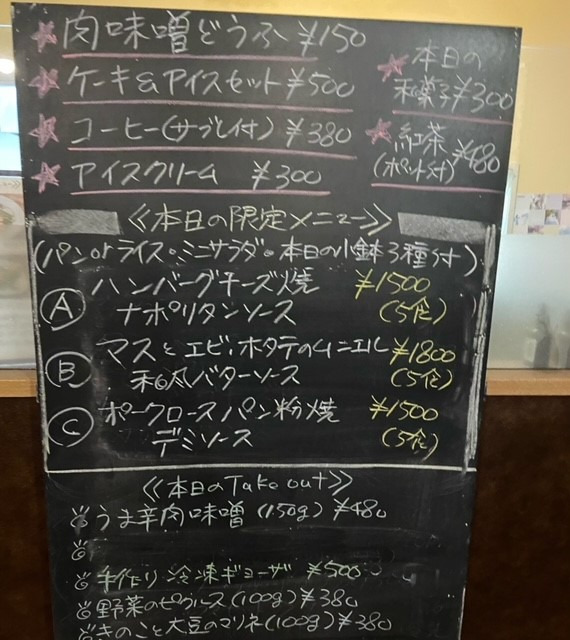 肉味噌どうふ ¥150
ケーキ&アイスセット ¥500
コーヒー(サブレ付) ¥380
アイスクリーム ¥300
本日の
和菓子 ¥300
紅茶 ¥480
(ポット付)
≪本日の限定メニュー≫
(パンorライス・ミニサラダ・本日の小鉢3種付)
A ハンバーグチーズ焼 ¥1500
ナポリタンソース (5食)
B マスとエビ、ホタテのムニエル ¥1800
和風バターソース (5食)
C ポークロースパン粉焼 ¥1500
デミソース (5食)
≪本日のTake out≫
うま辛肉味噌(150g) ¥480
手作り冷凍ギョーザ ¥500
野菜のピクルス(100g) ¥380
きのこと大豆のマリネ(100g) ¥380